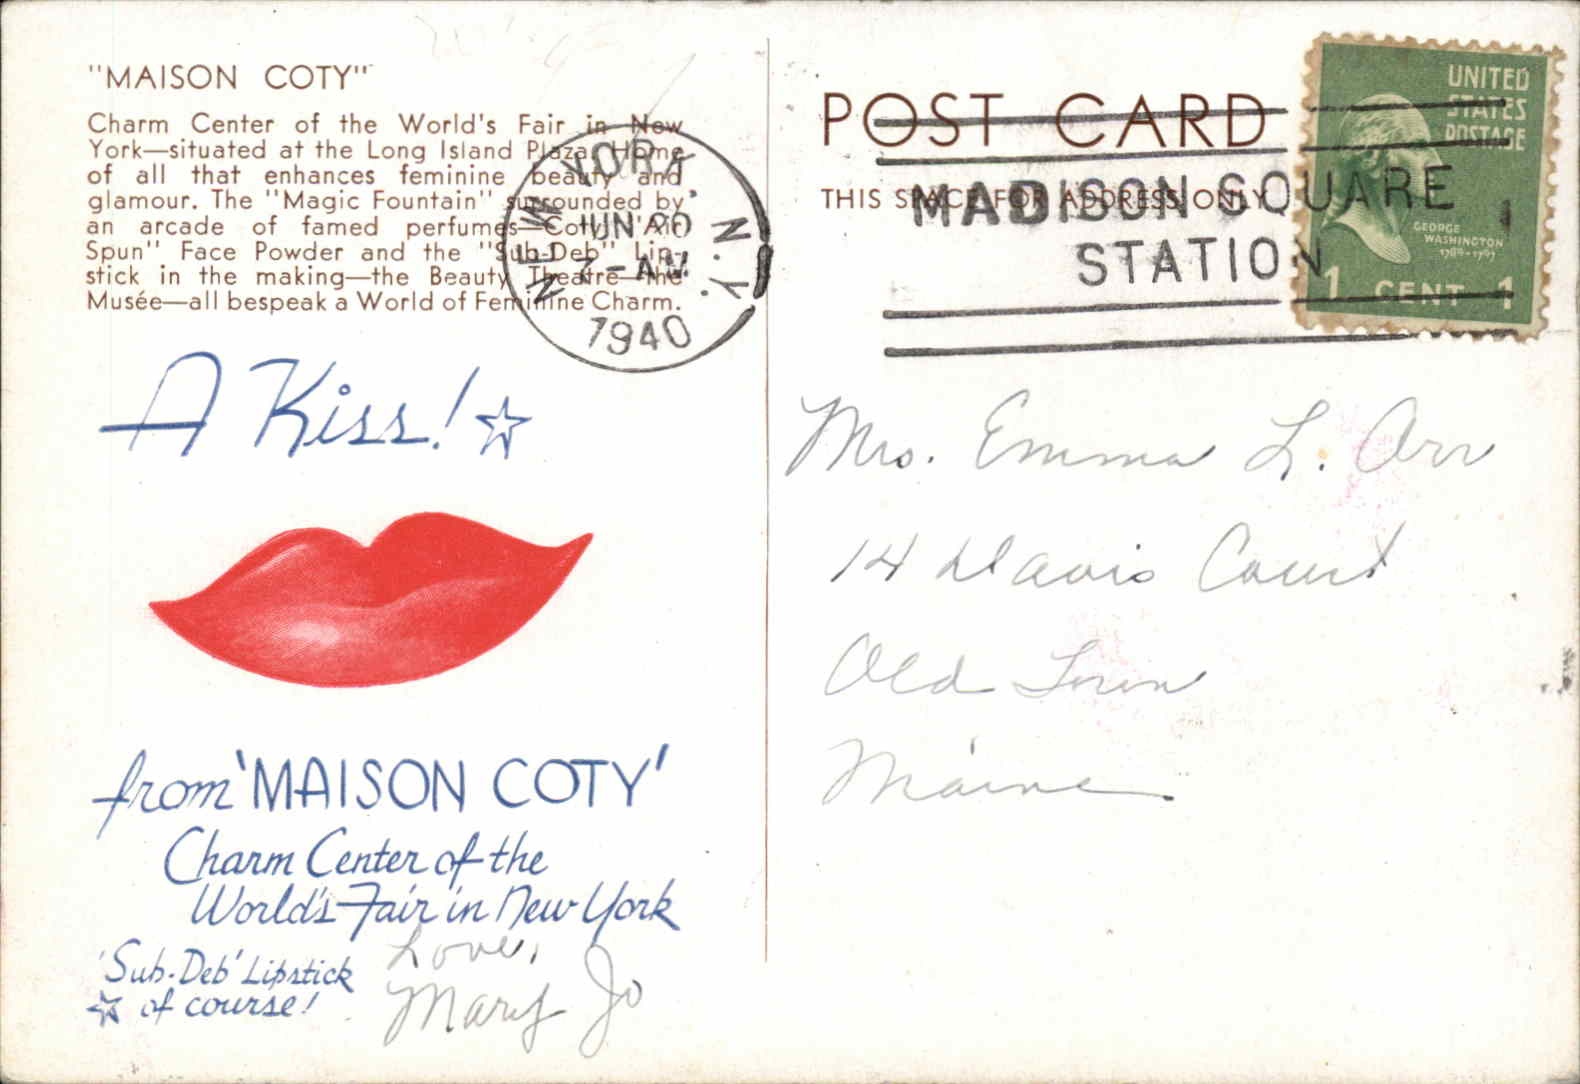 "MAISON COTY"
Charm Center of the World's Fair in New
York—situated at the Long Island Plaza. Home
of all that enhances feminine beauty and
glamour. The "Magic Fountain" surrounded by
an arcade of famed perfumes—Coty "Air
Spun" Face Powder and the "Sub-Deb" Lip-
stick in the making—the Beauty Theatre—the
Musée—all bespeak a World of Feminine Charm.
A Kiss!
from 'MAISON COTY'
Charm Center of the
World's Fair in New York
'Sub-Deb' Lipstick
of course!
Love,
Mary Jo
NEW YORK, N.Y.
JUN 20
7-AM
1940
POST CARD
THIS SPACE FOR ADDRESS ONLY
MADISON SQUARE
STATION
1
UNITED
STATES
POSTAGE
GEORGE
WASHINGTON
1789-1797
1 CENT 1
Mrs. Emma L. Orr
14 Davis Court
Old Town
Maine